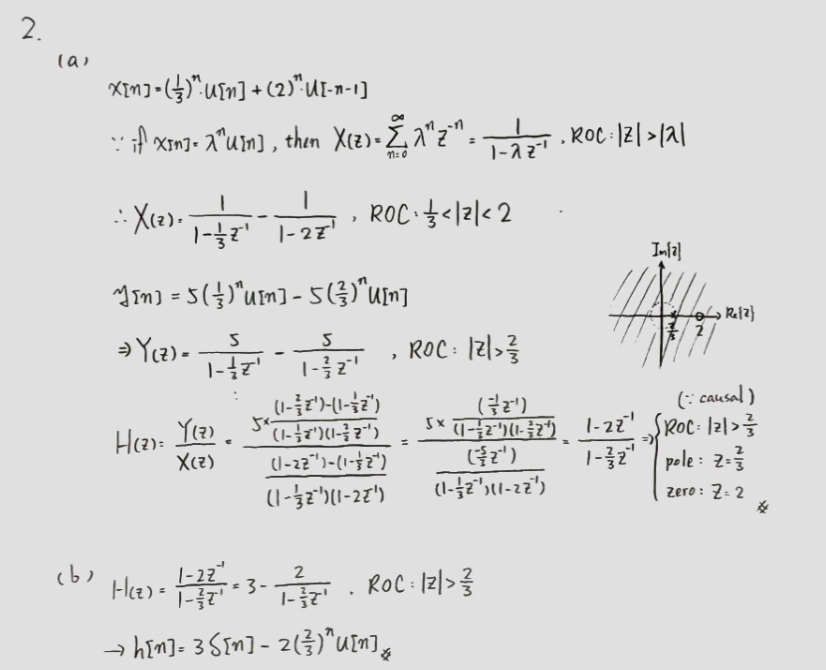 2.
(a)
x[n]=(1/3)^n·u[n]+(2)^n·u[-n-1]
∵ if x[n]=λ^n u[n], then X(z)=∑_{n=0}^{∞} λ^n z^{-n} = 1/(1-λz^{-1}), ROC:|z|>|λ|
∴ X(z)= 1/(1-1/3 z^{-1}) - 1/(1-2z^{-1}), ROC: 1/3<|z|<2
Im{z}
Re{z}
2/3
2
y[n] = 5(1/3)^n u[n] - 5(2/3)^n u[n]
⇒ Y(z)= 5/(1-1/3 z^{-1}) - 5/(1-2/3 z^{-1}), ROC: |z|>2/3
H(z)= Y(z)/X(z) = [5×((1-2/3 z^{-1})-(1-1/3 z^{-1}))/((1-1/3 z^{-1})(1-2/3 z^{-1}))]/[((1-2z^{-1})-(1-1/3 z^{-1}))/((1-1/3 z^{-1})(1-2z^{-1}))] = [5×(-1/3 z^{-1})/((1-1/3 z^{-1})(1-2/3 z^{-1}))]/[(-5/3 z^{-1})/((1-1/3 z^{-1})(1-2z^{-1}))] = (1-2z^{-1})/(1-2/3 z^{-1}) ⇒
(∵ causal)
ROC: |z|>2/3
pole: z=2/3
zero: z=2
(b) H(z)= (1-2z^{-1})/(1-2/3 z^{-1}) = 3 - 2/(1-2/3 z^{-1}). ROC: |z|>2/3
→ h[n]= 3δ[n] - 2(2/3)^n u[n]